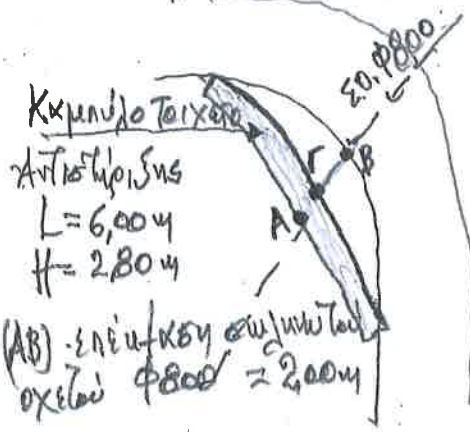 Σ.Ο. Φ800
Καμπύλο Τοιχείο
Αντιστήριξης
L = 6,00 m
H = 2,80 m
Γ
B
A
(AB) επέκταση σωληνωτού
οχετού Φ800 = 2,00 m